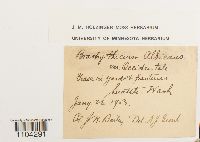 J. M. HOLZINGER MOSS HERBARIUM
UNIVERSITY OF MINNESOTA HERBARIUM
Brachythecium Albicans
var. occidentale
Grace in yards & pastures
Seattle Wash
Jany 22 1903.
J. W. Bailey Det. A.J. Grout
1104291